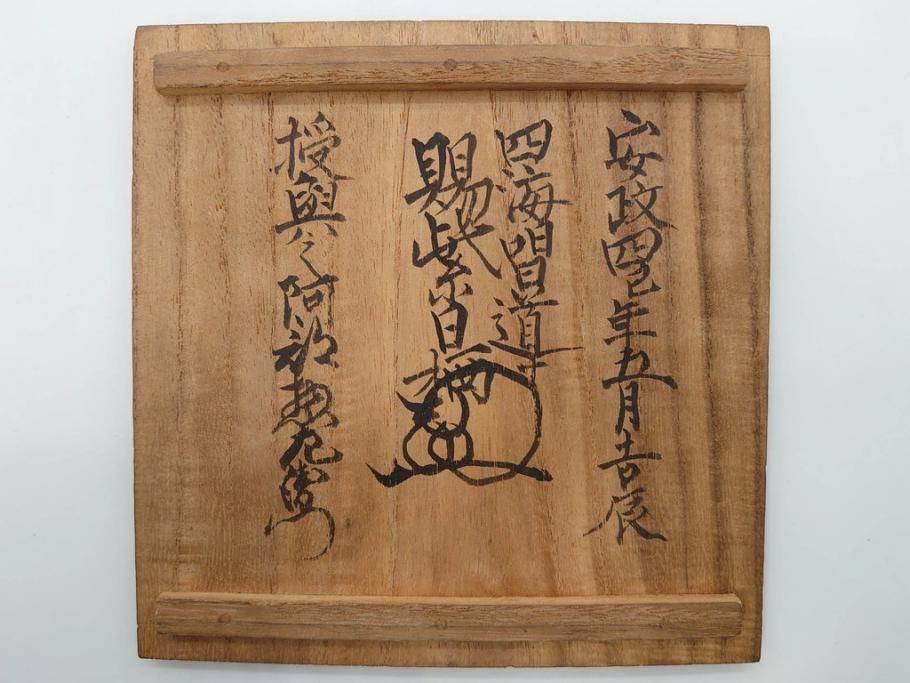 安政四巳年五月吉辰
四海唱導
賜紫日
授與之阿部惣左衛門